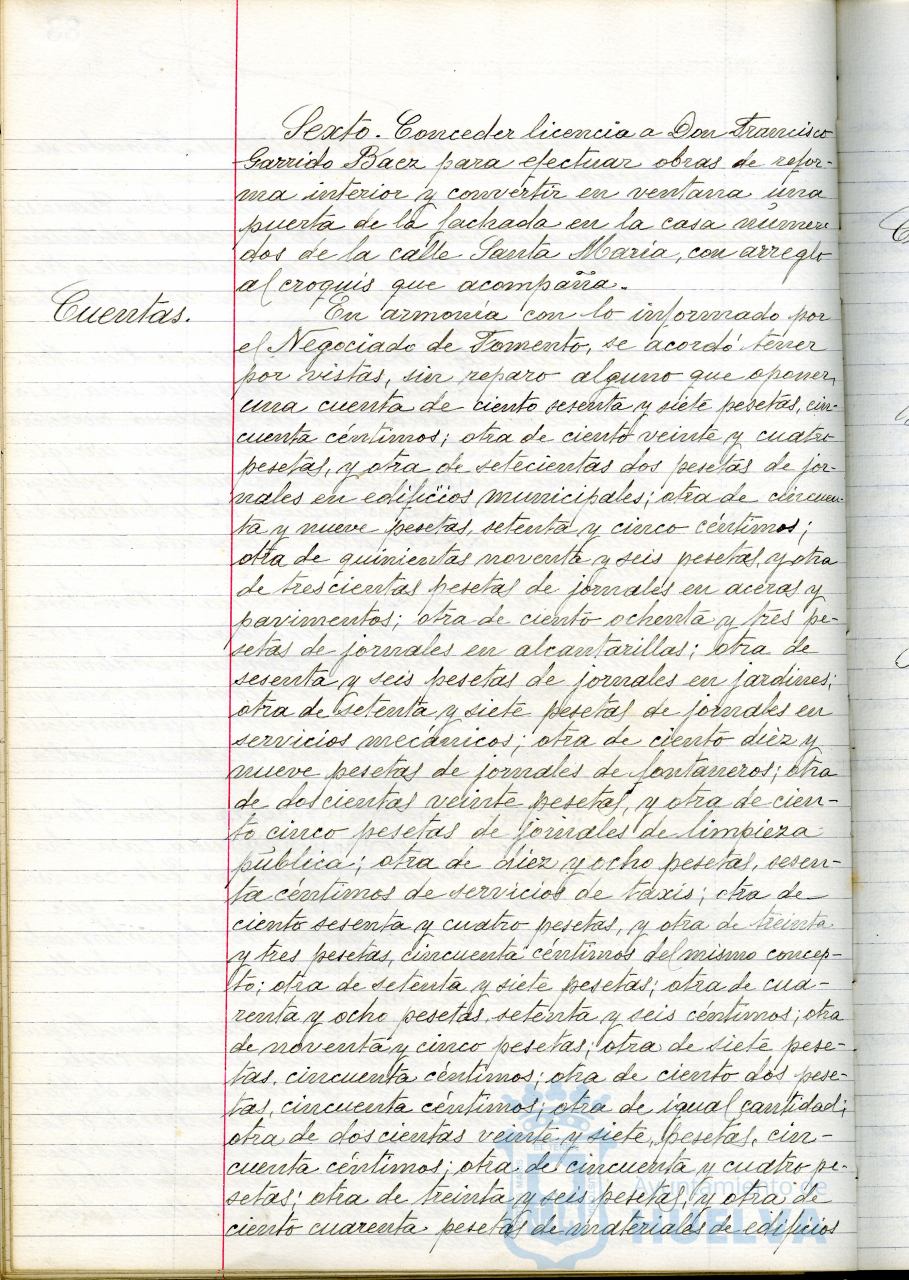 Sexto. Conceder licencia a Don Francisco
Garrido Báez para efectuar obras de refor-
ma interior y convertir en ventana una
puerta de la fachada en la casa número
dos de la calle Santa María, con arreglo
al croquis que acompaña.
Cuentas.
En armonía con lo informado por
el Negociado de Fomento, se acordó tener
por vistas, sin reparo alguno que oponer,
una cuenta de ciento sesenta y siete pesetas, cin-
cuenta céntimos; otra de ciento veinte y cuatro
pesetas, y otra de setecientas dos pesetas de jor-
nales en edificios municipales; otra de cincuen-
ta y nueve pesetas, setenta y cinco céntimos;
otra de quinientas noventa y seis pesetas, y otra
de trescientas pesetas de jornales en aceras y
pavimentos; otra de ciento ochenta y tres pe-
setas de jornales en alcantarillas; otra de
sesenta y seis pesetas de jornales en jardines;
otra de setenta y siete pesetas de jornales en
servicios mecánicos; otra de ciento diez y
nueve pesetas de jornales de fontaneros; otra
de doscientas veinte pesetas, y otra de cien-
to cinco pesetas de jornales de limpieza
pública; otra de diez y ocho pesetas, sesen-
ta céntimos de servicios de taxis; otra de
ciento sesenta y cuatro pesetas, y otra de treinta
y tres pesetas, cincuenta céntimos del mismo concep-
to; otra de setenta y siete pesetas; otra de cua-
renta y ocho pesetas, setenta y seis céntimos; otra
de noventa y cinco pesetas; otra de siete pese-
tas, cincuenta céntimos; otra de ciento dos pese-
tas, cincuenta céntimos; otra de igual cantidad;
otra de doscientas veinte y siete pesetas, cin-
cuenta céntimos; otra de cincuenta y cuatro pe-
setas; otra de treinta y seis pesetas, y otra de
ciento cuarenta pesetas de materiales de edificios
Ayuntamiento de
HUELVA